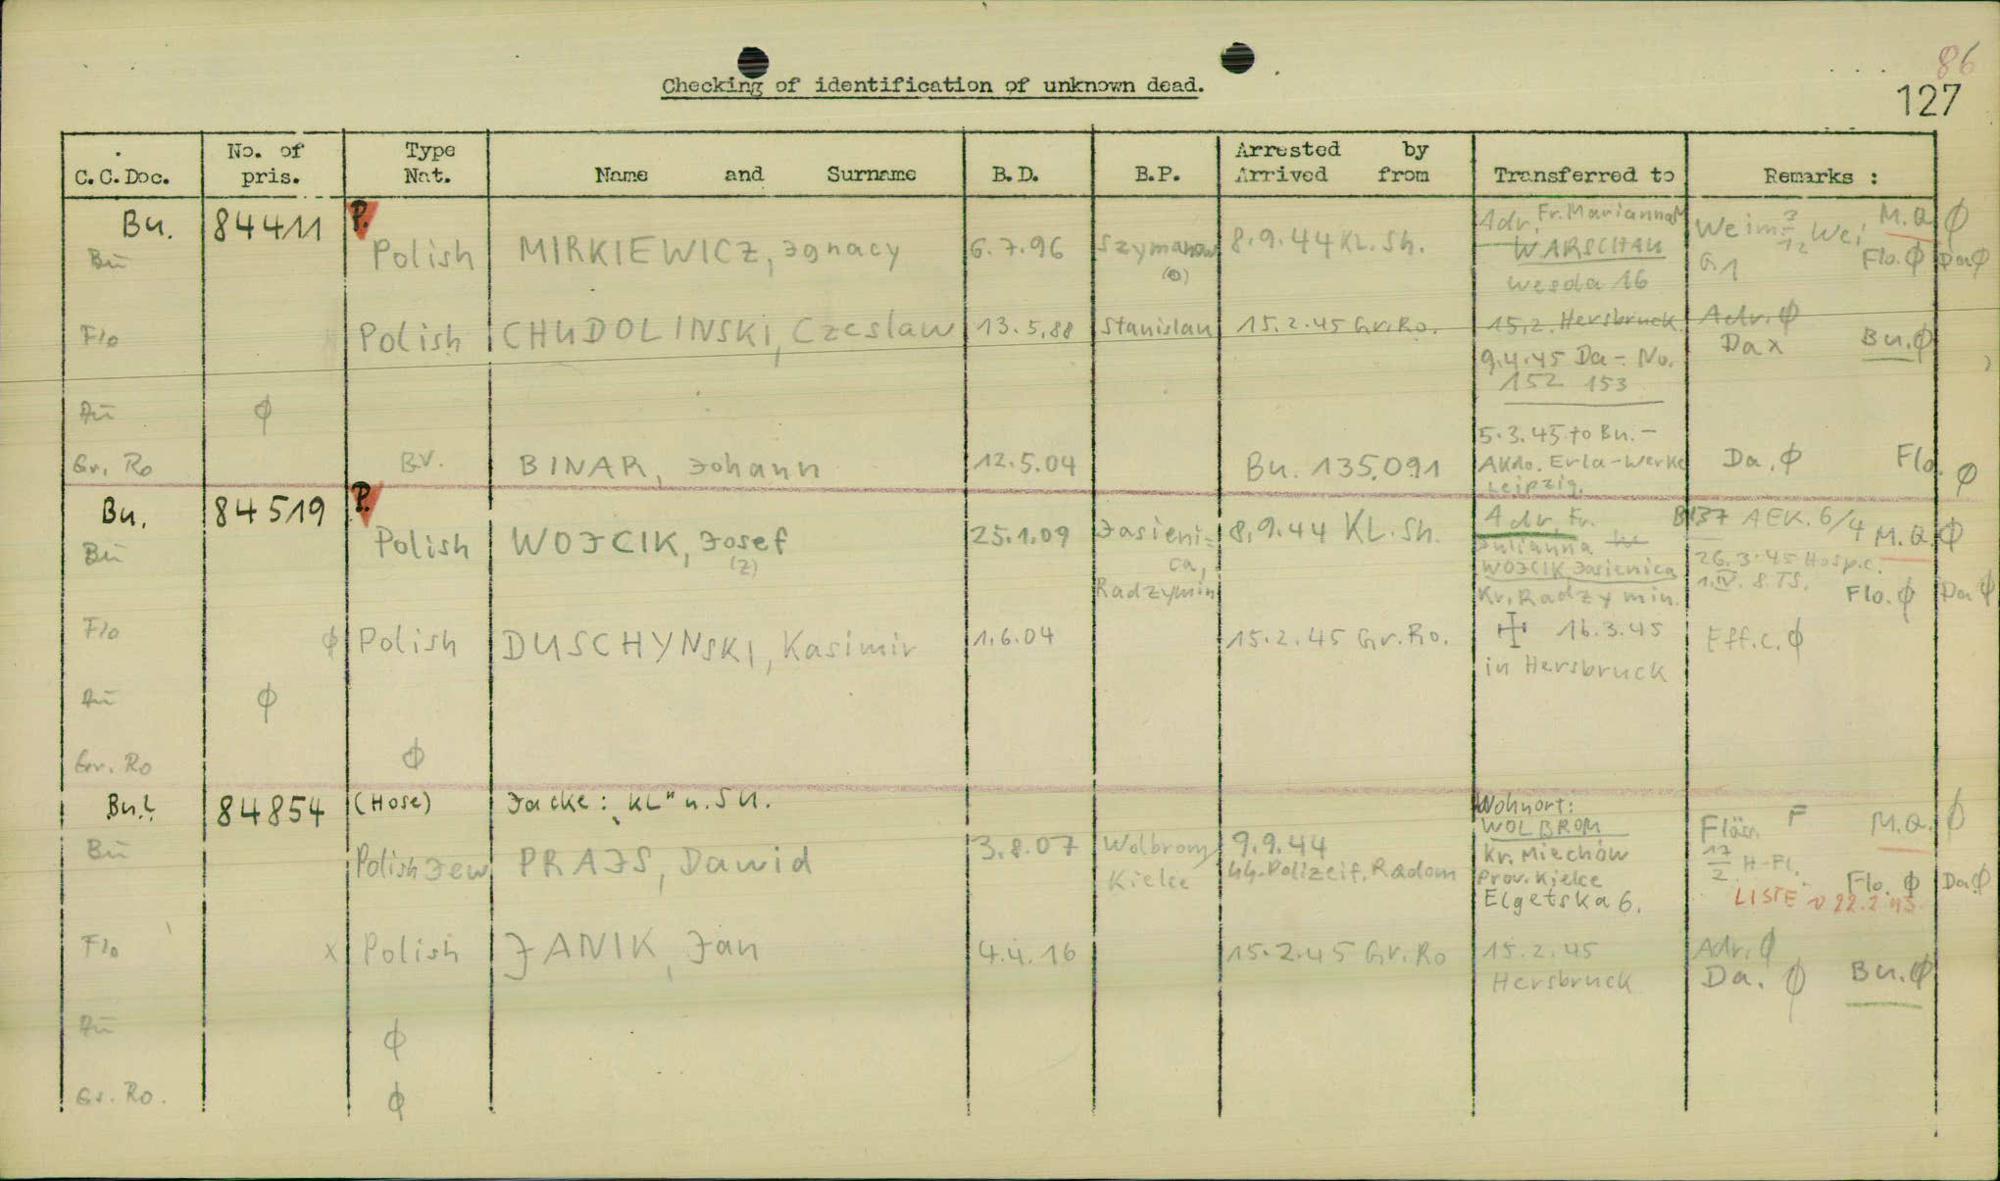 86
127
Checking of identification of unknown dead.
C.C.Doc. No. of pris. Type Nat. Name and Surname B.D. B.P. Arrested by Arrived from Transferred to Remarks :
Bu. 84411 P.
Bu Polish MIRKIEWICZ, Ignacy 6.7.96 Szymanow 8.9.44 KL.Sh. Adr. Fr. Marianna M
WARSCHAU
wesda 16
Weim. Wei M.Q. ϕ
G1 Flo. ϕ Da ϕ
Flo Polish CHUDOLINSKI, Czeslaw 13.5.88 Stanislau 15.2.45 Gr.Ro. 15.2. Hersbruck Adr. ϕ
9.4.45 Da - No. Dax Bu. ϕ
152 153
Au ϕ
Gr. Ro BV. BINAR, Johann 12.5.04 Bu. 135091 5.3.45 to Bu. -
AKdo. Erla-Werke Da. ϕ Flo. ϕ
Leipzig.
Bu. 84519 P.
Bu Polish WOJCIK, Josef 25.1.09 Jasieni= 8.9.44 KL.Sh. Adr. Fr. AEK. 6/4 M.Q. ϕ
(Z) ca, Julianna 26.3.45 Hosp.c.
Radzymin WOJCIK Jasienica
Kr. Radzymin. Flo. ϕ Da ϕ
Flo ϕ Polish DUSCHYNSKI, Kasimir 1.6.04 15.2.45 Gr.Ro. 16.3.45 Eff.c. ϕ
in Hersbruck
Au ϕ
Gr. Ro ϕ
Bu. 84854 (Hose) Jacke: "KL" u. Su. Wohnort:
WOLBROM F M.Q. ϕ
Bu Polish Jew PRAJS, Dawid 3.8.07 Wolbrom 9.9.44 Kr. Miechów
Kielce Polizeif. Radom Prov. Kielce H-Fl. Flo. ϕ Da ϕ
Elgetska 6. LISTE v 22.2.45
Flo x Polish JANIK, Jan 4.4.16 15.2.45 Gr.Ro 15.2.45 Adr. ϕ
Hersbruck Da. ϕ Bu. ϕ
Au ϕ
Gr. Ro. ϕ